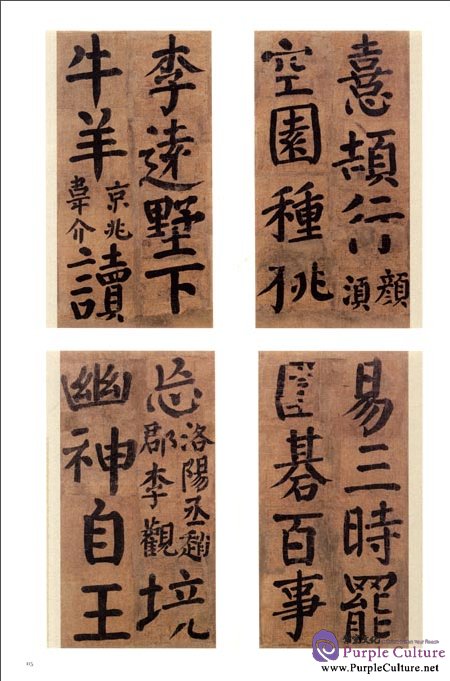 憙頡行顏須
空園種桃
李遠墅下
牛羊京兆韋介讀
易三時罷
圍碁百事
忘洛陽丞趙郡李觀境
幽神自王
115
Purple Culture
www.PurpleCulture.net